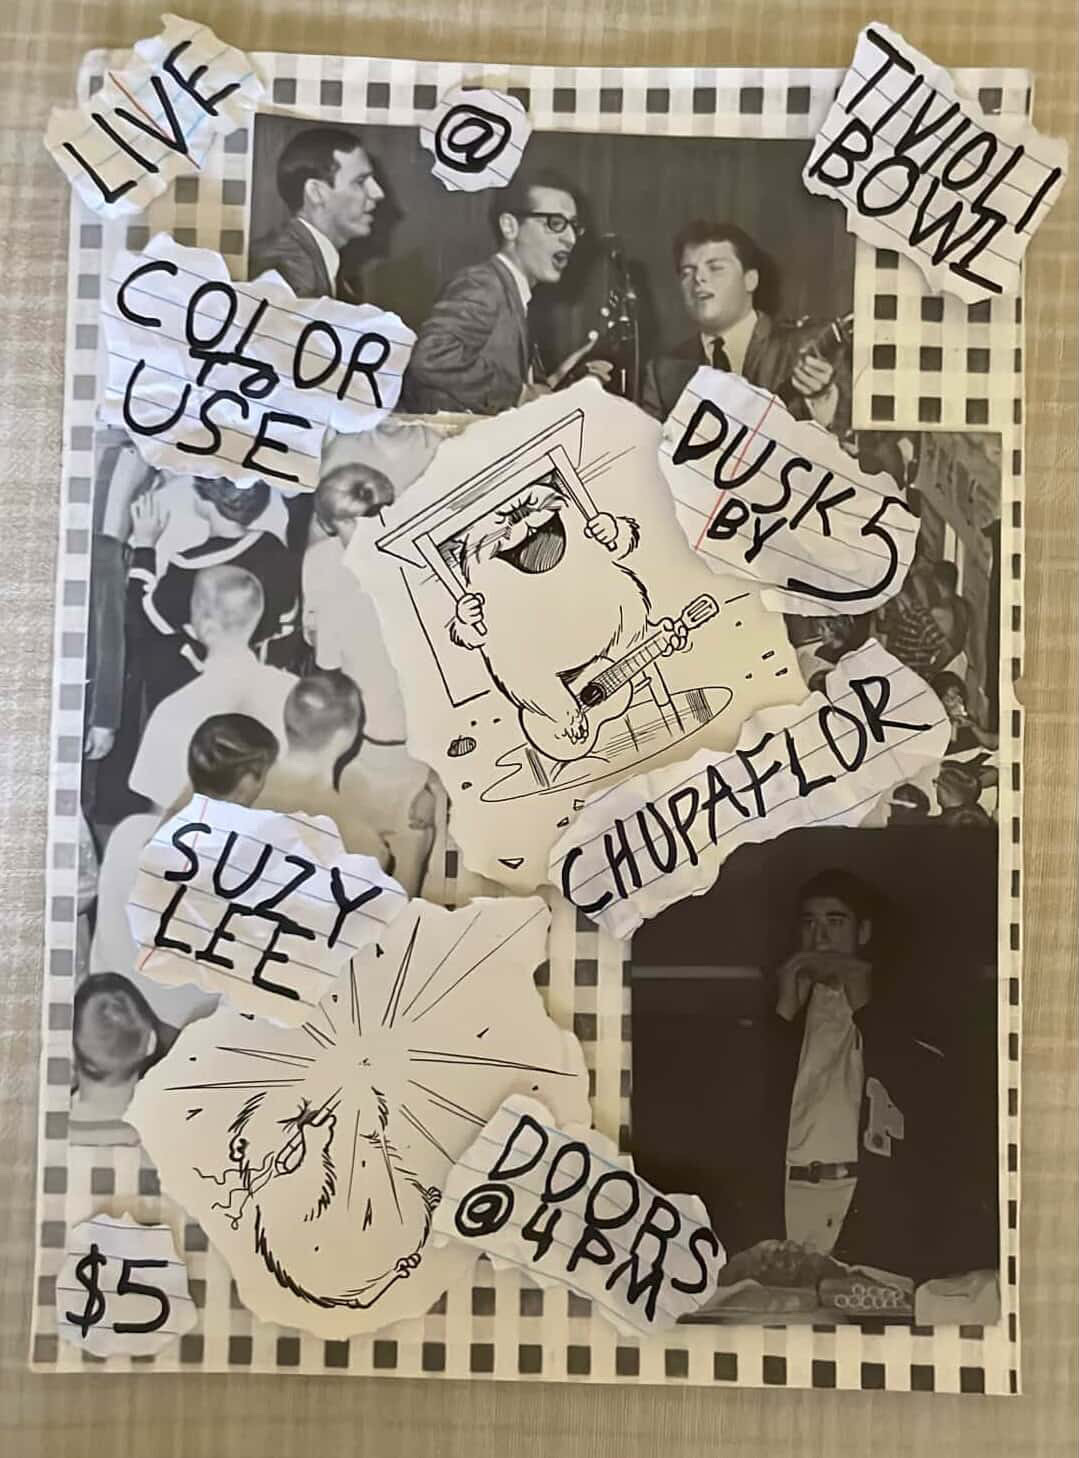 LIVE
@
TIVIOLI
BOWL
COLOR
to
USE
DUSK
BY 5
CHUPAFLOR
SUZY
LEE
DOORS
@4PM
$5